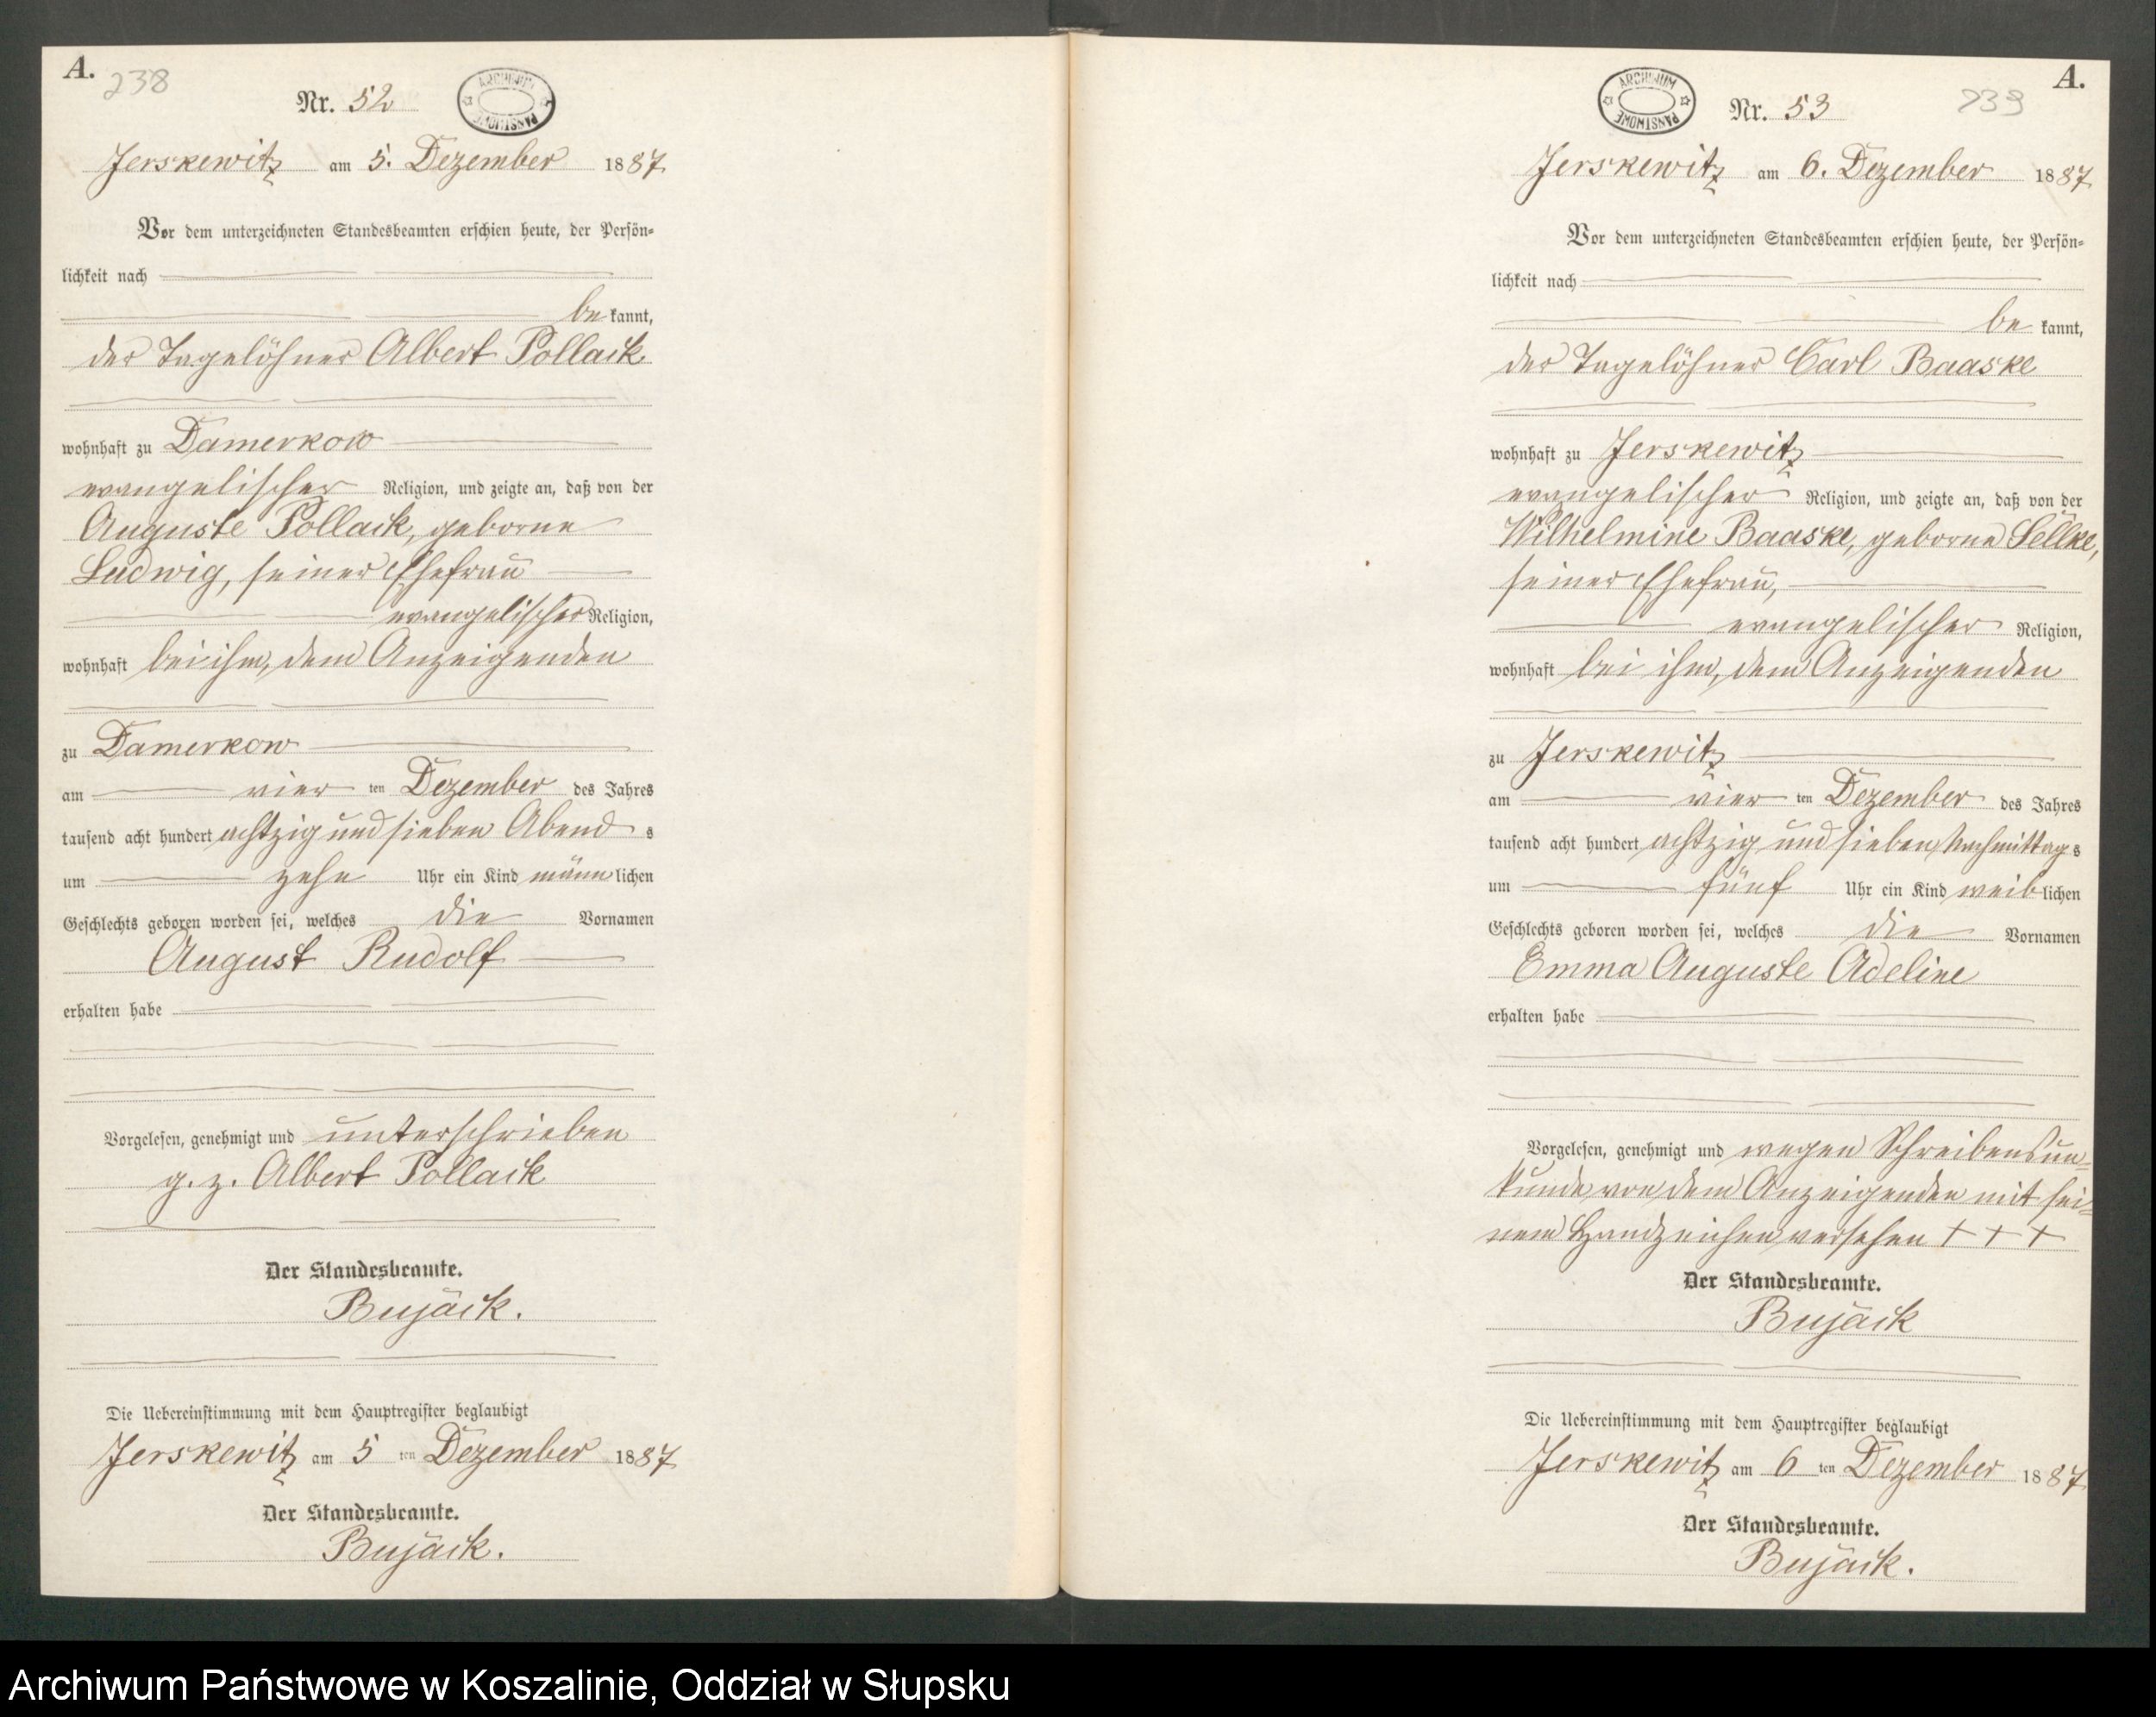 A.
238
Nr. 52
ARCHIWUM PAŃSTWOWE
Jerskewitz am 5. Dezember 1887
Vor dem unterzeichneten Standesbeamten erschien heute, der Persön-
lichkeit nach
be kannt,
der Tagelöhner Albert Pollack
wohnhaft zu Damerkow
evangelischer Religion, und zeigte an, daß von der
Auguste Pollack, geborne
Ludwig, seiner Ehefrau
evangelischer Religion,
wohnhaft bei ihm, dem Anzeigenden
zu Damerkow
am vier ten Dezember des Jahres
tausend acht hundert achtzig und sieben Abend s
um zehn Uhr ein Kind männ lichen
Geschlechts geboren worden sei, welches die Vornamen
August Rudolf
erhalten habe
Vorgelesen, genehmigt und unterschrieben
g. z. Albert Pollack
Der Standesbeamte.
Bujack.
Die Uebereinstimmung mit dem Hauptregister beglaubigt
Jerskewitz am 5 ten Dezember 1887
Der Standesbeamte.
Bujack.
A.
239
Nr. 53
ARCHIWUM PAŃSTWOWE
Jerskewitz am 6. Dezember 1887
Vor dem unterzeichneten Standesbeamten erschien heute, der Persön-
lichkeit nach
be kannt,
der Tagelöhner Carl Baaske
wohnhaft zu Jerskewitz
evangelischer Religion, und zeigte an, daß von der
Wilhelmine Baaske, geborne Sellke,
seiner Ehefrau,
evangelischer Religion,
wohnhaft bei ihm, dem Anzeigenden
zu Jerskewitz
am vier ten Dezember des Jahres
tausend acht hundert achtzig und sieben Nachmittag s
um fünf Uhr ein Kind weib lichen
Geschlechts geboren worden sei, welches die Vornamen
Emma Auguste Adeline
erhalten habe
Vorgelesen, genehmigt und wegen Schreibensun-
kunde von dem Anzeigenden mit sei-
nem Handzeichen versehen + + +
Der Standesbeamte.
Bujack
Die Uebereinstimmung mit dem Hauptregister beglaubigt
Jerskewitz am 6 ten Dezember 1887
Der Standesbeamte.
Bujack.
Archiwum Państwowe w Koszalinie, Oddział w Słupsku